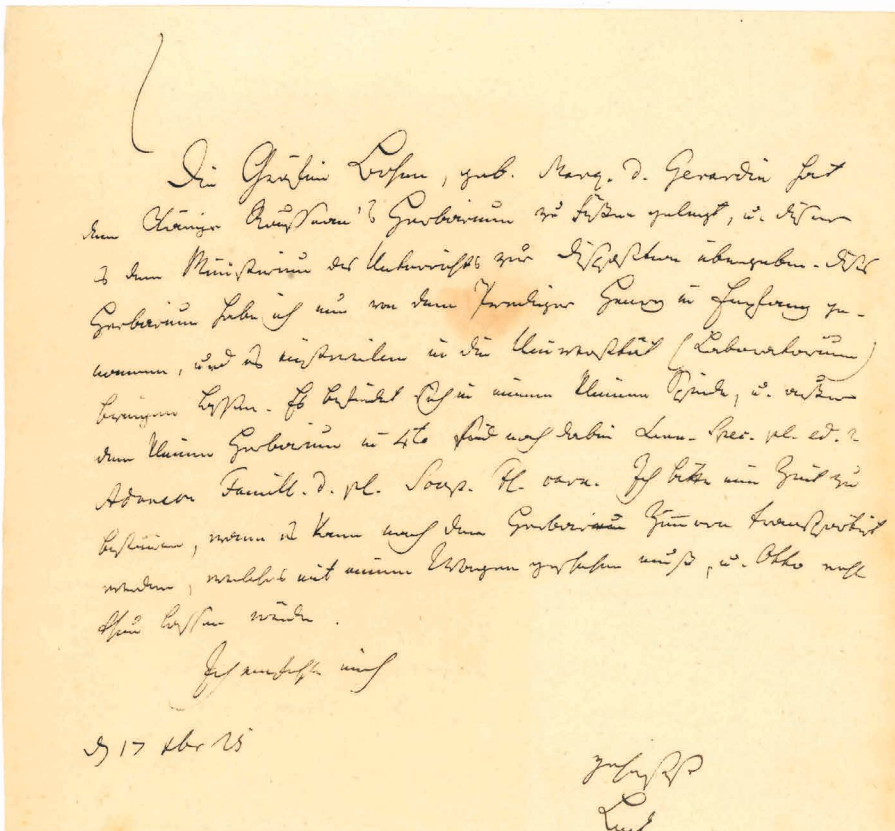 Die Gräfin Bohm, geb. Marq. d. Gerardin hat
dem Könige Rousseau's Herbarium zu Füßen gelegt, u. dieser
es dem Ministerium des Unterrichts zur Disposition übergeben. Dieß
Herbarium habe ich nun von dem Prediger Henry in Empfang ge-
nommen, und es einstweilen in die Universität (Laboratorium)
bringen lassen. Es befindet sich in einem kleinen Spinde, u. außer
dem kleinen Herbarium in 4to sind noch dabei Linn. Spec. pl. ed. 2
Adanson Famill. d. pl. Scop. Fl. carn. Ich bitte eine Zeit zu
bestimmen, wann es kann nach dem Herbarium hinaus transportirt
werden, welches mit einem Wagen geschehen muß, u. Otto wohl
thun lassen würde.
Ich empfehle mich
d 17 Xbr 25
gehorsamst
Link